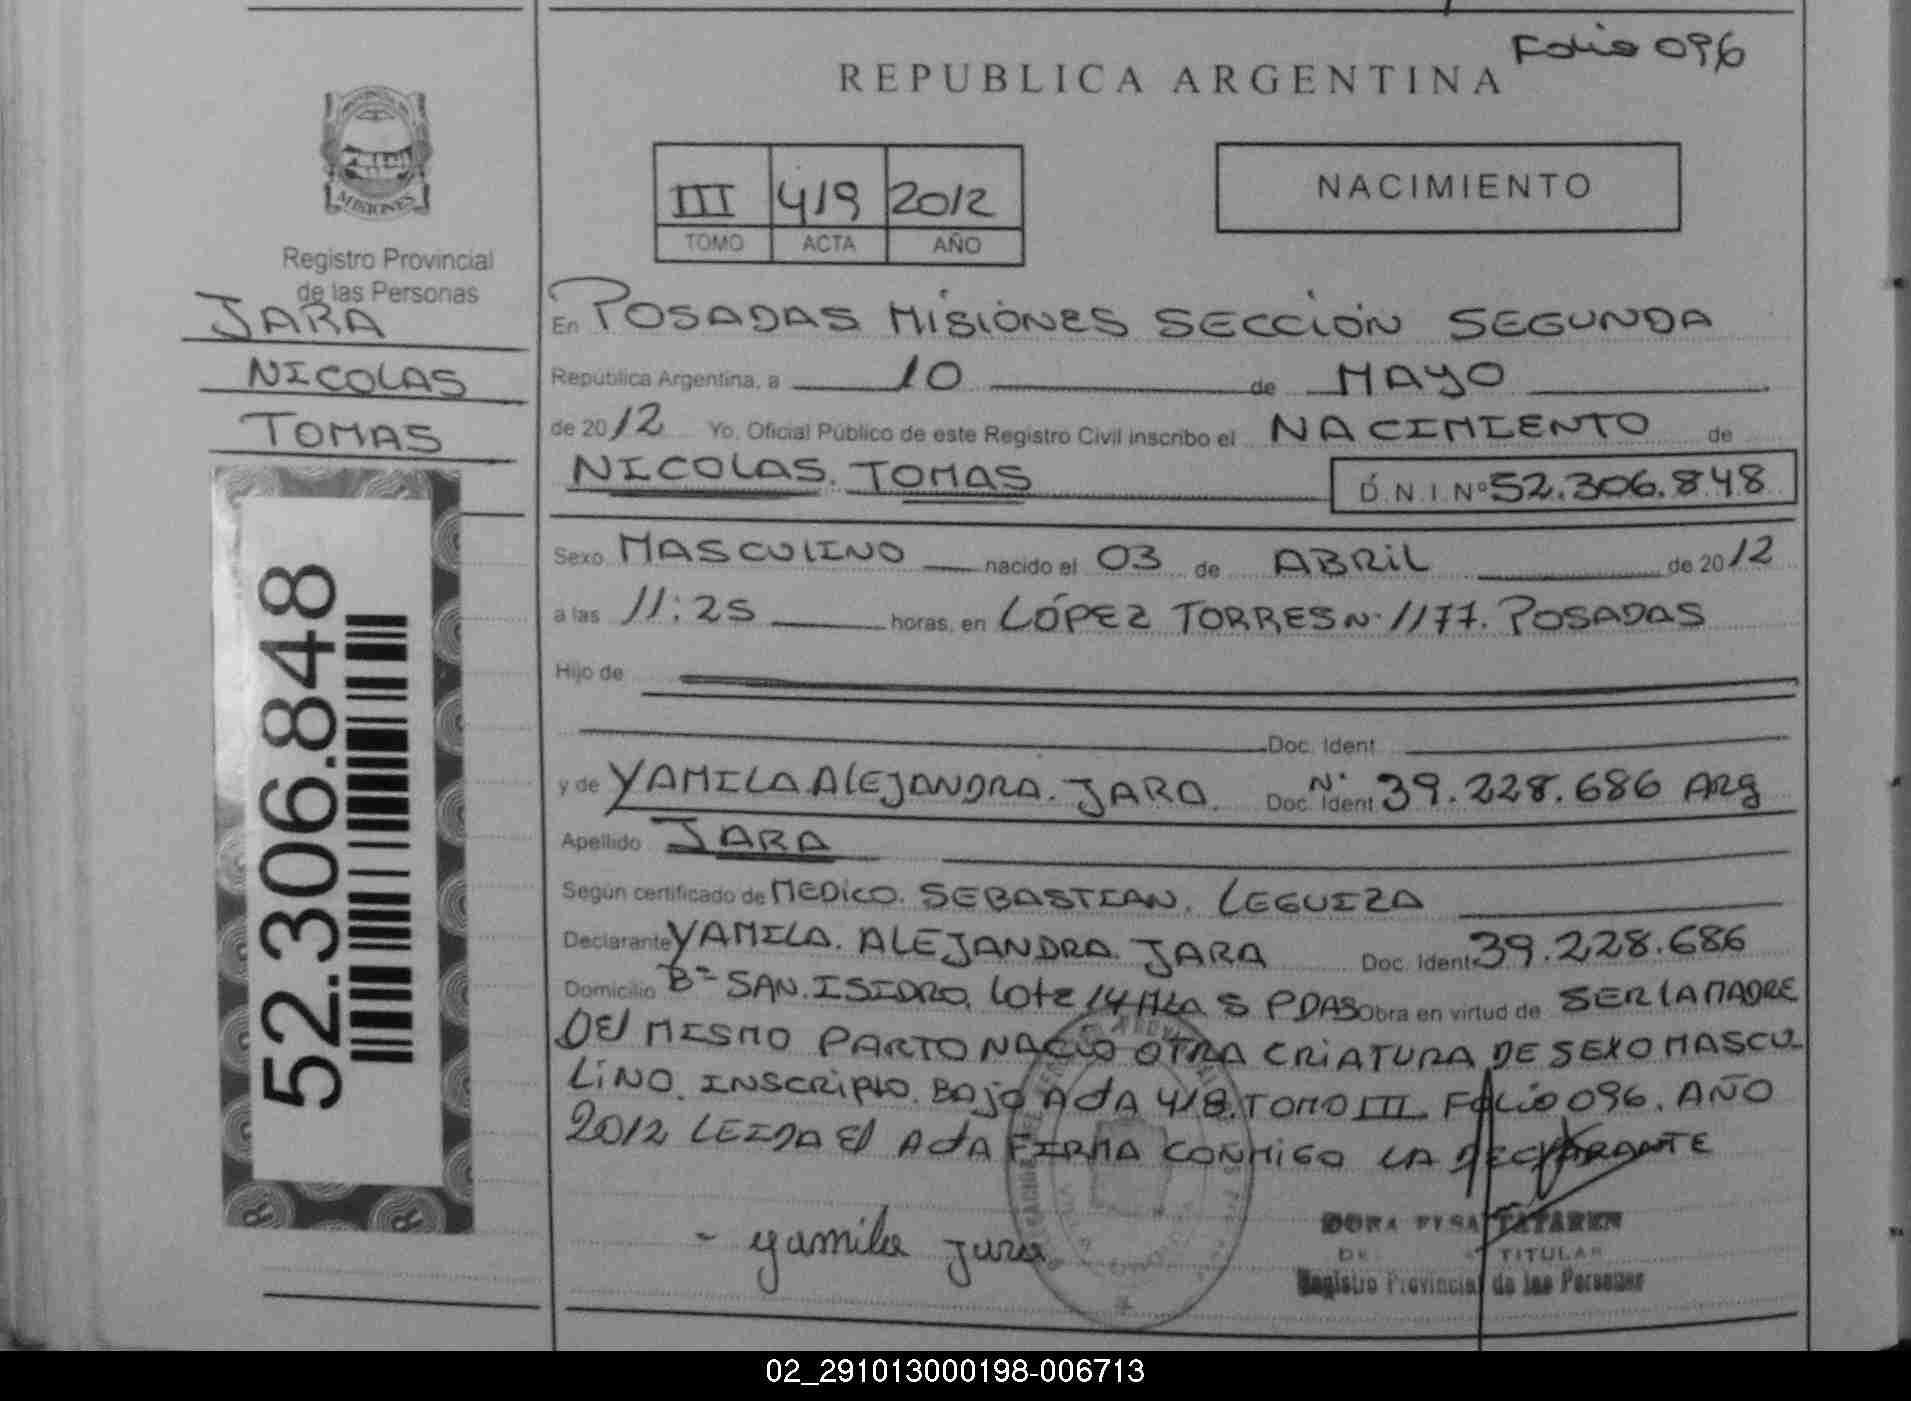 Folio 096
REPUBLICA ARGENTINA
MISIONES
Registro Provincial
de las Personas
JARA
NICOLAS
TOMAS
52.306.848
III 419 2012
TOMO ACTA AÑO
NACIMIENTO
En POSADAS MISIONES SECCION SEGUNDA
República Argentina, a 10 de MAYO
de 2012 Yo, Oficial Público de este Registro Civil inscribo el NACIMIENTO de
NICOLAS. TOMAS D.N.I. Nº 52.306.848
Sexo MASCULINO nacido el 03 de ABRIL de 2012
a las 11:25 horas, en LÓPEZ TORRES N· 1177. POSADAS
Hijo de
Doc. Ident.
y de YAMILA ALEJANDRA. JARA. Doc. Ident. N· 39.228.686 Arg
Apellido JARA
Según certificado de MEDICO. SEBASTIAN. LEGUIZA
Declarante YAMILA. ALEJANDRA. JARA Doc. Ident. 39.228.686
Domicilio Bº SAN. ISIDRO, Lote 14 S PDAS Obra en virtud de SER LA MADRE
DEl MISMO PARTO NACIO OTRA CRIATURA DE SEXO MASCU
LINO. INSCRIPTO. BAJO ActA 418. TOMO III. FOLIO 096. AÑO
2012 LEIDA El ActA FIRMA CONMIGO LA DECLARANTE
- yamila jara
DORA
TITULAR
Registro Provincial de las Personas
02_291013000198-006713